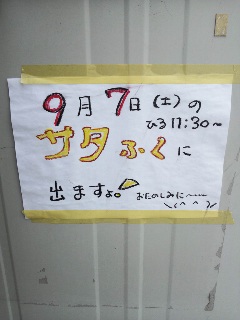 9月7日(土)の
ひる11:30〜
サタふくに
出ますよ。
おたのしみに〜
\(^^)/